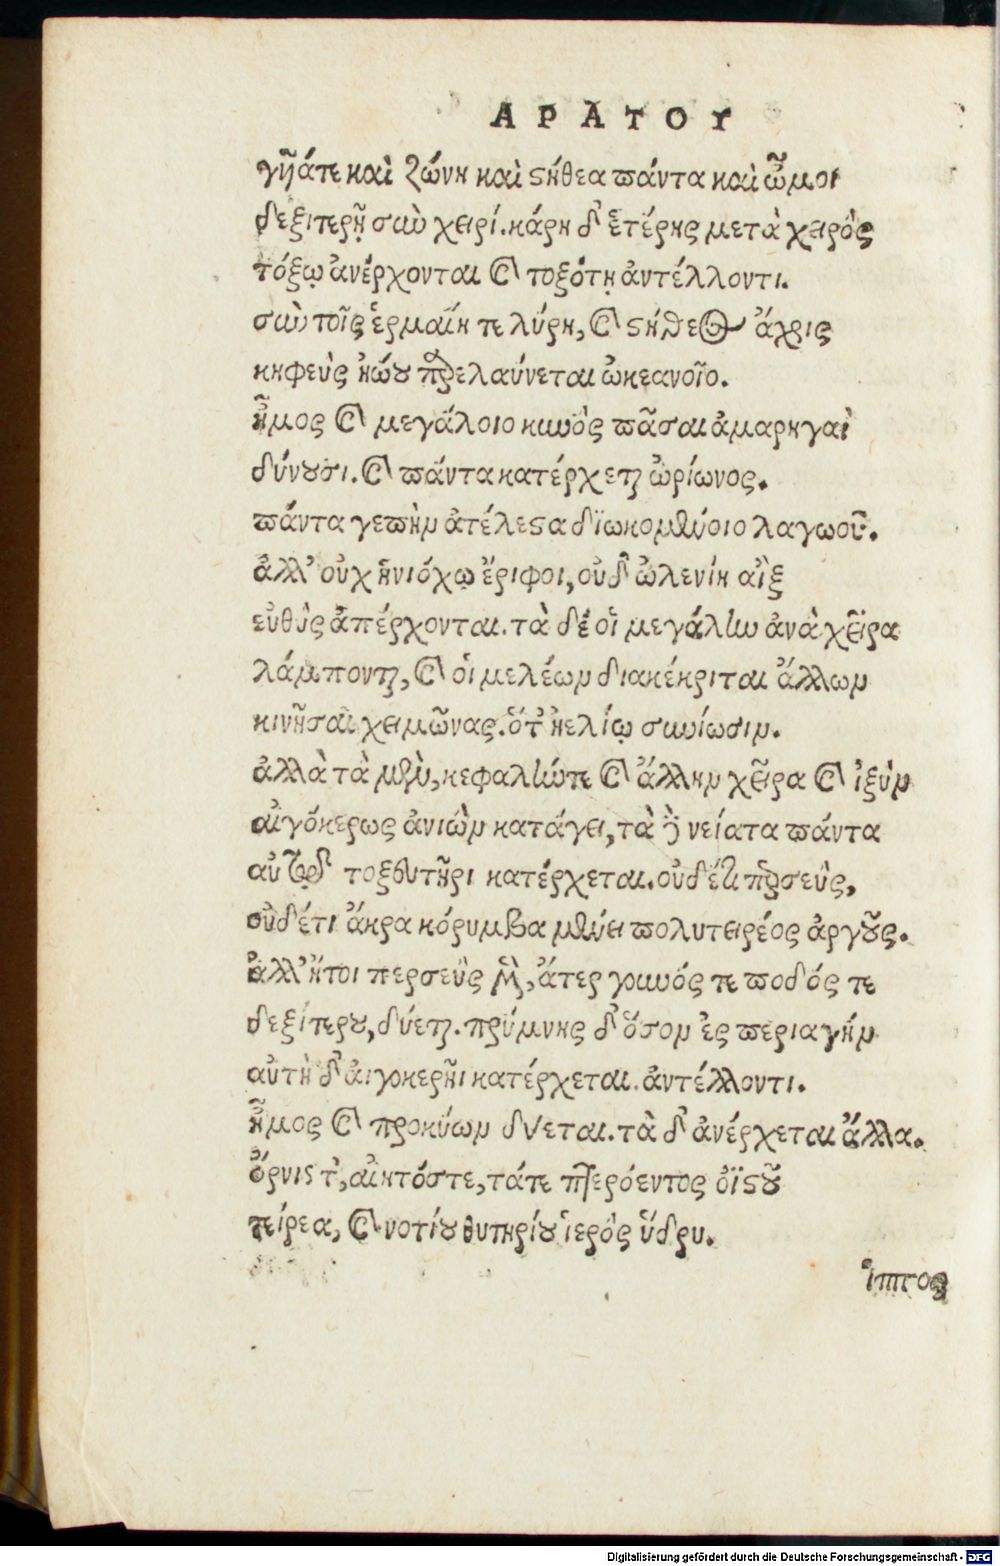 ΑΡΑΤΟΥ
γῆάτε καὶ ζώνη καὶ ϛήθεα πάντα καὶ ὦμοι
δεξιτερῇ σὺν χειρί. κάρη δ' ἑτέρης μετὰ χειρὸς
τόξῳ ἀνέρχονται καὶ τοξότῃ ἀντέλλοντι.
σὺν τοῖς ἑρμαίη τε λύρη, καὶ ϛήθεος ἄχρις
κηφεὺς ἠῴου παρελαύνεται ὠκεανοῖο.
ἦμος καὶ μεγάλοιο κυνὸς πᾶσαι ἀμαρηγαὶ
δύνουσι. καὶ πάντα κατέρχεται ὠρίωνος.
πάντα γεπὴν ἀτέλεϛα διωκομένοιο λαγωοῦ.
ἀλλ' οὐχ ἡνιόχῳ ἔριφοι, οὐδ' ὠλενίη αἲξ
εὐθὺς ἀπέρχονται. τὰ δέ οἱ μεγάλην ἀνὰ χεῖρα
λάμπονται, καὶ οἱ μελέων διακέκριται ἄλλων
κινῆσαι χειμῶνας. ὅτ' ἠελίῳ συνίωσιν.
ἀλλὰ τὰ μὲν, κεφαλήντε καὶ ἄλλην χεῖρα καὶ ἰξὺν
αἰγόκερως ἀνιὼν κατάγει, τὰ δὲ νείατα πάντα
αὐτῷδ τοξευτῆρι κατέρχεται. οὐδέτι περσεὺς,
οὐδέτι ἄκρα κόρυμβα μένει πολυτειρέος ἀργοῦς.
ἀλλ' ἤτοι περσεὺς μὲν, ἄτερ γουνός τε ποδός τε
δεξιτεροῦ, δύεται. πρύμνης δ' ὅσον ἐς περιαγήν
αὐτὴ δ' αἰγοκερῆι κατέρχεται. ἀντέλλοντι.
ἦμος καὶ προκύων δύεται. τὰ δ' ἀνέρχεται ἄλλα.
ὄρνιϛ τ', αἰητόστε, τάτε πτερόεντος ὀϊϛοῦ
τείρεα, καὶ νοτίου θυτηρίου ἱερὸς ἕδρυ.
ἵππος
Digitalisierung gefördert durch die Deutsche Forschungsgemeinschaft - DFG